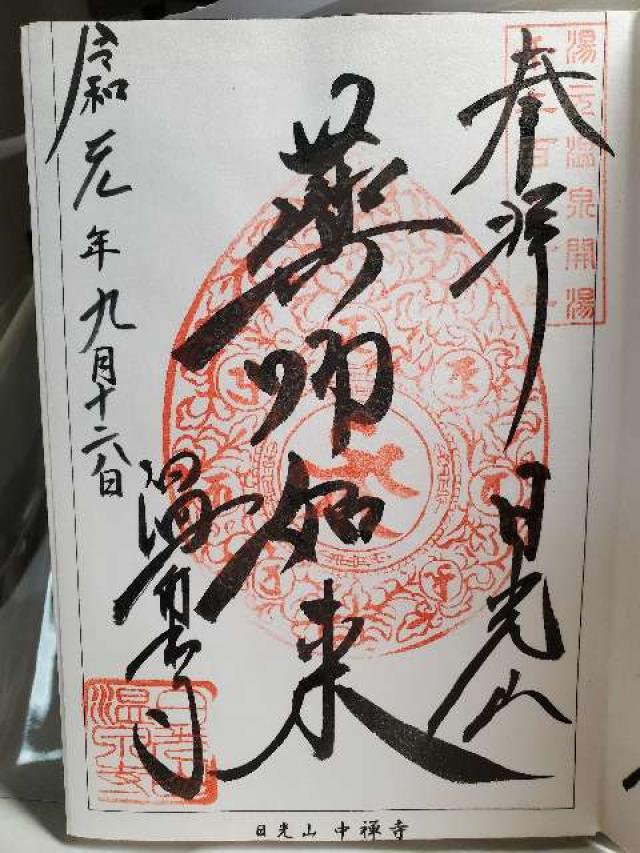 湯元温泉開湯
奉拝 日光山
薬師如来
令和元年九月十六日
温泉寺
日光山温泉寺
日光山 中禅寺